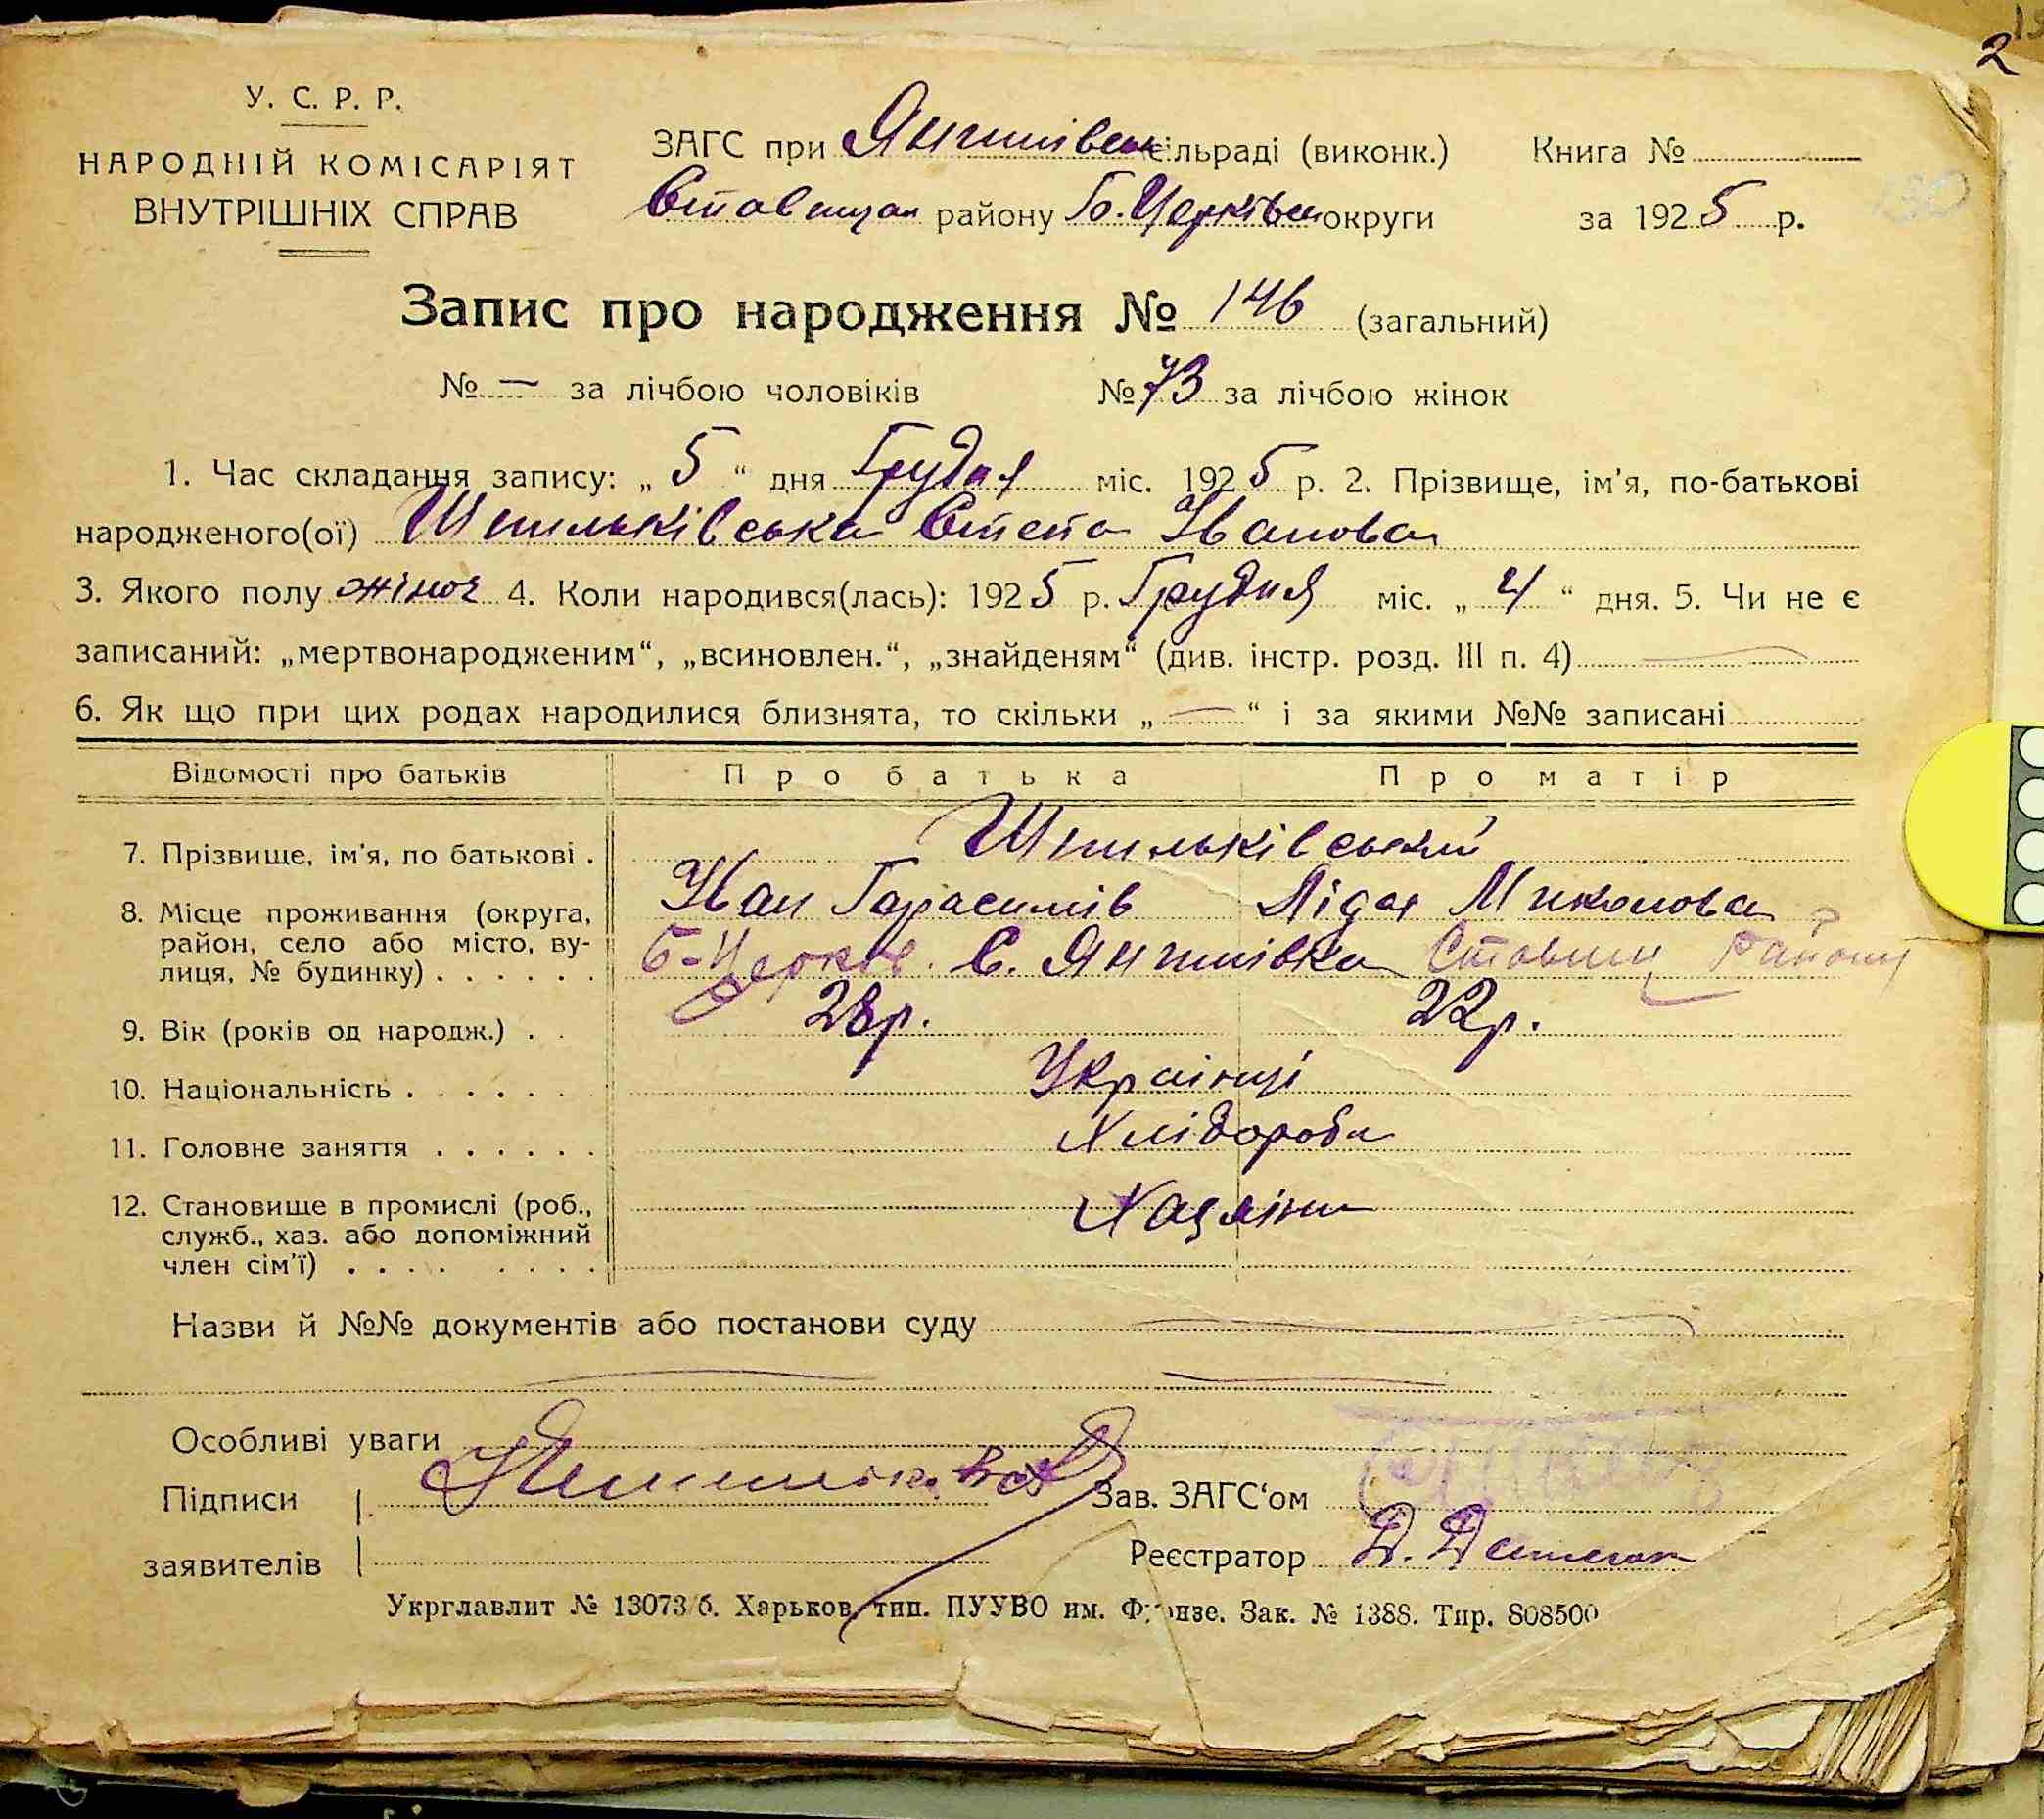 2
У. С. Р. Р.
НАРОДНІЙ КОМІСАРІЯТ
ВНУТРІШНІХ СПРАВ
ЗАГС при Янишівськ сільраді (виконк.) Книга №
Ставищан району Б.Церківськ округи за 1925 р.
Запис про народження № 146 (загальний)
№ — за лічбою чоловіків № 73 за лічбою жінок
1. Час складання запису: „ 5 “ дня Грудня міс. 1925 р. 2. Прізвище, ім'я, по-батькові
народженого(ої) Шпильківська Степа Іванова
3. Якого полу жіноч 4. Коли народився(лась): 1925 р. Грудня міс. „ 4 “ дня. 5. Чи не є
записаний: „мертвонародженим“, „всиновлен.“, „знайденям“ (див. інстр. розд. III п. 4)
6. Як що при цих родах народилися близнята, то скільки „ — “ і за якими №№ записані
Відомості про батьків Про батька Про матір
7. Прізвище, ім'я, по батькові . Шпильківський
Іван Гарасимів Ліда Миколова
8. Місце проживання (округа, район, село або місто, вулиця, № будинку) . . . . . . Б-Церков. С. Янишівка Ставищ району
9. Вік (років од народж.) . . 28р. 22р.
10. Національність . . . . . . Українці
11. Головне заняття . . . . . . Хлібороби
12. Становище в промислі (роб.,
служб., хаз. або допоміжний
член сім'ї) . . . . . . . .
Назви й №№ документів або постанови суду
Особливі уваги
Підписи Зав. ЗАГС‘ом
заявителів Реєстратор Д.
Укрглавлит № 13073/б. Харьков, тип. ПУУВО им. Фрунзе. Зак. № 1388. Тир. 808500